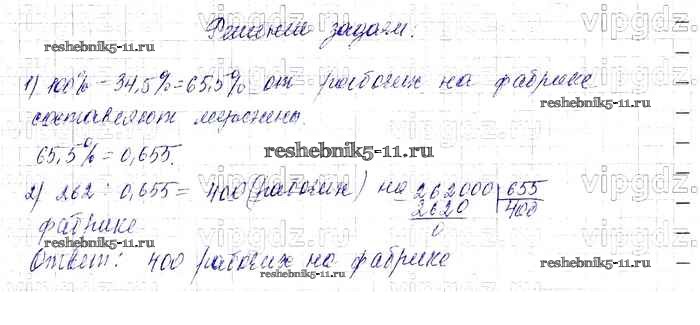 vipgdz.
Решение задачи:
vipgdz.
reshebnik5-11.ru
1) 100% - 34,5% = 65,5% от рабочих на фабрике
reshebnik5-11.ru
составляют мужчины.
vipgdz.
65,5% = 0,655.
reshebnik5-11.ru
2) 262 : 0,655 = 400 (рабочих) на
262000 | 655
2620 400
0
фабрике
reshebnik5-11.ru
Ответ: 400 рабочих на фабрике
reshebnik5-11.ru
vipgdz.